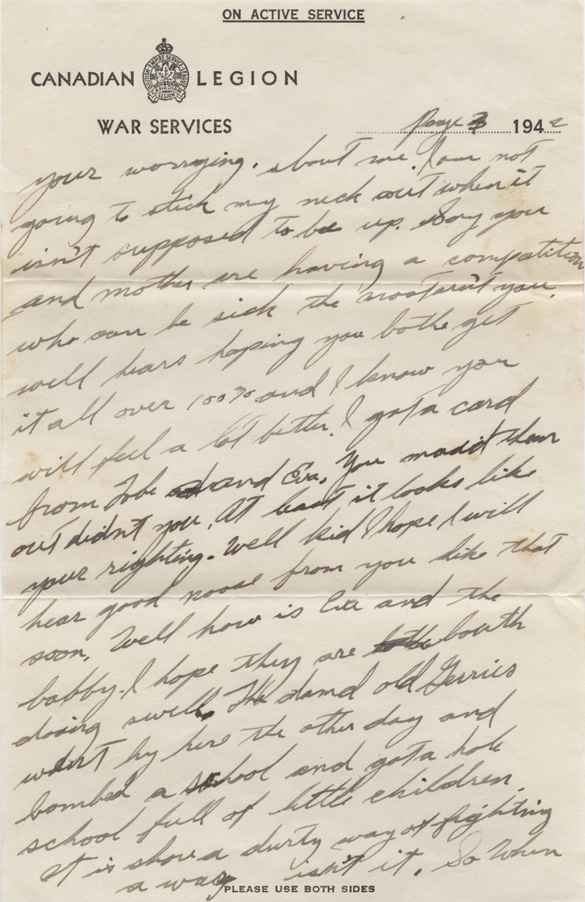 ON ACTIVE SERVICE
CANADIAN LEGION
WAR SERVICES
Page 3 1942
your worrying. about me. I am not
going to stick my neck out when it
isn't supposed to be up. Say you
and mother are having a competition
who can be sick the most arn't you.
well hears hoping you bothe get
it all over 100% and I know you
will feel a lot better. I got a card
from Tobe and Eva. You madit them
out didn't you. At least it looks like
your righting. Well kid I hope I will
hear good noose from you like that
soon. Well how is Eva and the
babby. I hope they are bouth
doing swell. The damd old Gerries
want by here the other day and
bombed a school and got a hole
school full of little children.
It is shore a durty way of fighting
a way isn't it. So When
PLEASE USE BOTH SIDES